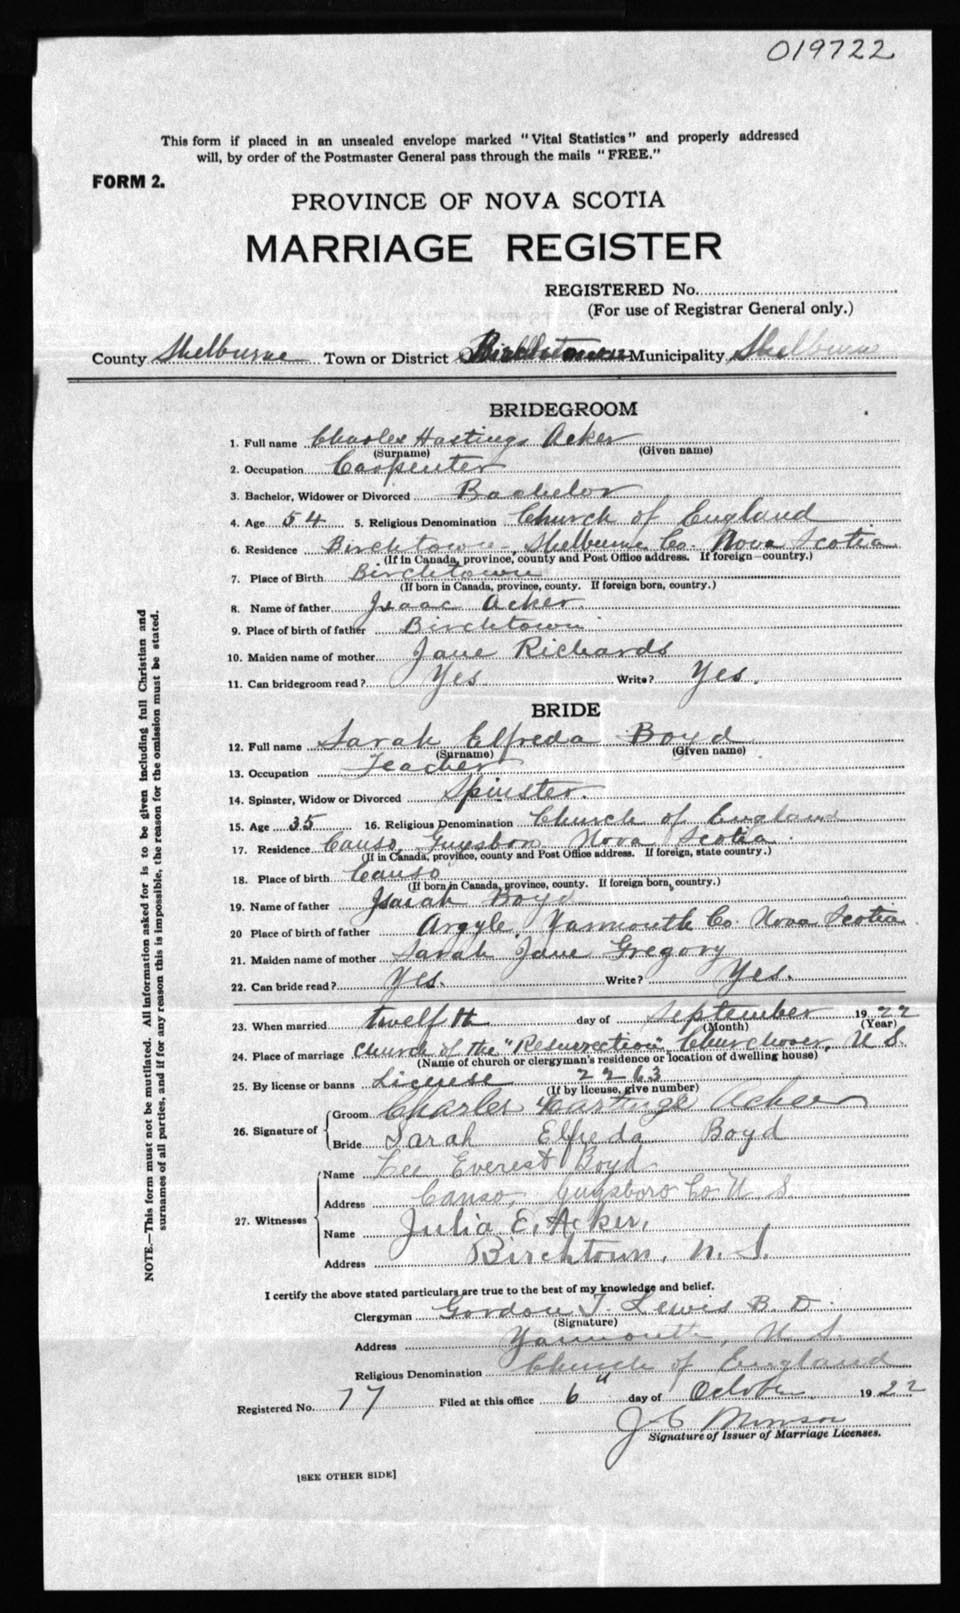 019722
This form if placed in an unsealed envelope marked "Vital Statistics" and properly addressed
will, by order of the Postmaster General pass through the mails "FREE."
FORM 2.
PROVINCE OF NOVA SCOTIA
MARRIAGE REGISTER
REGISTERED No.
(For use of Registrar General only.)
County Shelburne Town or District Birchtown Municipality Shelburne
BRIDEGROOM
1. Full name Charles Hastings Acker
(Surname) (Given name)
2. Occupation Carpenter
3. Bachelor, Widower or Divorced Bachelor
4. Age 54 5. Religious Denomination Church of England
6. Residence Birchtown, Shelburne Co. Nova Scotia
(If in Canada, province, county and Post Office address. If foreign—country.)
7. Place of Birth Birchtown
(If born in Canada, province, county. If foreign born, country.)
8. Name of father Isaac Acker.
9. Place of birth of father Birchtown
10. Maiden name of mother Jane Richards
11. Can bridegroom read? Yes Write? Yes.
BRIDE
12. Full name Sarah Elfreda Boyd
(Surname) (Given name)
13. Occupation Teacher
14. Spinster, Widow or Divorced Spinster.
15. Age 35 16. Religious Denomination Church of England
17. Residence Canso, Guysboro Nova Scotia
(If in Canada, province, county and Post Office address. If foreign, state country.)
18. Place of birth Canso
(If born in Canada, province, county. If foreign born, country.)
19. Name of father Isaiah Boyd
20 Place of birth of father Argyle, Yarmouth Co. Nova Scotia
21. Maiden name of mother Sarah Jane Gregory
22. Can bride read? Yes. Write? Yes.
23. When married twelfth day of September 1922
(Month) (Year)
24. Place of marriage Church of the "Resurrection", Churchover, N S.
(Name of church or clergyman's residence or location of dwelling house)
25. By license or banns License 2263
(If by license, give number)
26. Signature of Groom Charles Hastings Acker
Bride Sarah Elfreda Boyd
27. Witnesses Name Lee Everest Boyd
Address Canso, Guysboro Co N. S
Name Julia E. Acker,
Address Birchtown, N. S.
I certify the above stated particulars are true to the best of my knowledge and belief.
Clergyman Gordon T. Lewis B. D.
(Signature)
Address Yarmouth, N S.
Religious Denomination Church of England
Registered No. 77 Filed at this office 6" day of October 1922
J C
Signature of Issuer of Marriage Licenses.
[SEE OTHER SIDE]
NOTE.—This form must not be mutilated. All information asked for is to be given including full Christian and
surnames of all parties, and if for any reason this is impossible, the reason for the omission must be stated.